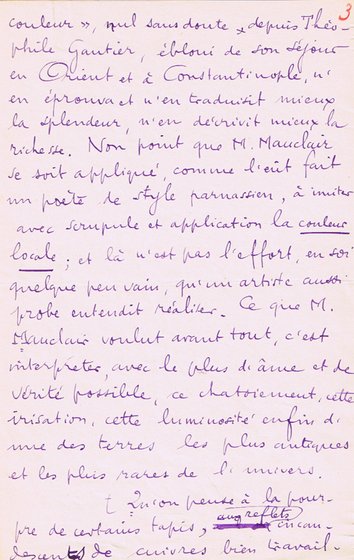 3
couleur », nul sans doute, depuis Théo-
phile Gautier, ébloui de son séjour
en Orient et à Constantinople, n'
en éprouva et n'en traduisit mieux
la splendeur, n'en décrivit mieux la
richesse. Non point que M. Mauclair
se soit appliqué, comme l'eût fait
un poète de style parnassien, à imiter
avec scrupule et application la couleur
locale ; et là n'est pas l'effort, en soi
quelque peu vain, qu'un artiste aussi
probe entendit réaliser. Ce que M.
Mauclair voulut avant tout, c'est
interpréter, avec le plus d'âme et de
vérité possible, ce chatoiement, cette
irisation, cette luminosité enfin d'
une des terres les plus antiques
et les plus rares de l'univers.
[ Qu'on pense à la pour-
pre de certains tapis, aux reflets incan-
descents de cuivres bien travail-